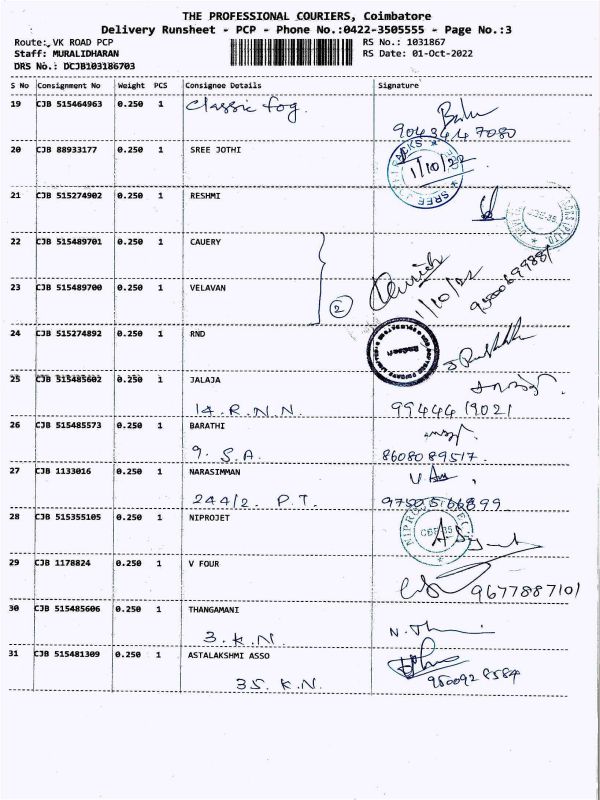 THE PROFESSIONAL COURIERS, Coimbatore
Delivery Runsheet - PCP - Phone No.:0422-3505555 - Page No.:3
Route: VK ROAD PCP RS No.: 1031867
Staff: MURALIDHARAN RS Date: 01-Oct-2022
DRS No.: DCJB103186703
S No Consignment No Weight PCS Consignee Details Signature
19 CJB 515464963 0.250 1 Classic fog.
9043447080
20 CJB 88933177 0.250 1 SREE JOTHI
1/10/22
21 CJB 515274902 0.250 1 RESHMI
22 CJB 515489701 0.250 1 CAUERY
23 CJB 515489700 0.250 1 VELAVAN
2 1/10/22
24 CJB 515274892 0.250 1 RND
25 CJB 515485602 0.250 1 JALAJA
14. R.N.N. 9944419021
26 CJB 515485573 0.250 1 BARATHI
9. S.A. 8608089517.
27 CJB 1133016 0.250 1 NARASIMMAN
244/2. P.T. 9750566899
28 CJB 515355105 0.250 1 NIPROJET
29 CJB 1178824 0.250 1 V FOUR
9677887101
30 CJB 515485606 0.250 1 THANGAMANI
3. K.N.
31 CJB 515481309 0.250 1 ASTALAKSHMI ASSO
35. K.N. 9500928584